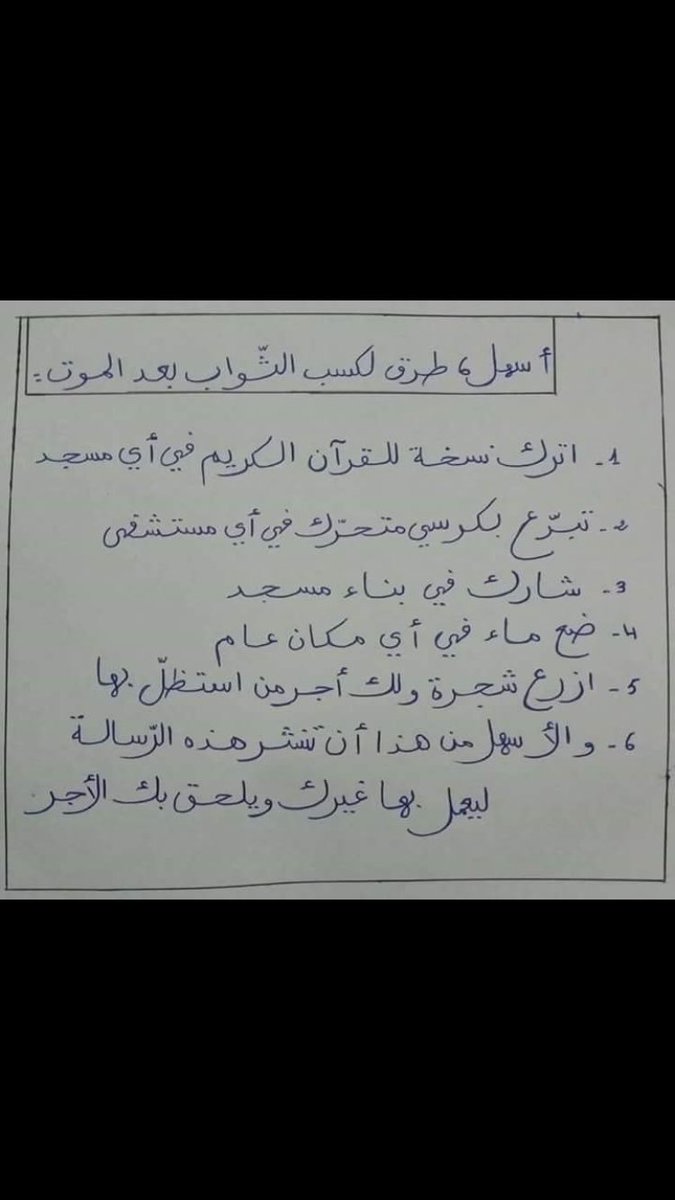 أسهل 6 طرق لكسب الثّواب بعد الموت:
1- اترك نسخة للقرآن الكريم في أي مسجد
2- تبرّع بكرسي متحرّك في أي مستشفى
3- شارك في بناء مسجد
4- ضع ماء في أي مكان عام
5- ازرع شجرة ولك أجر من استظلّ بها
6- والأسهل من هذا أن تنشر هذه الرّسالة
ليعمل بها غيرك ويلحق بك الأجر